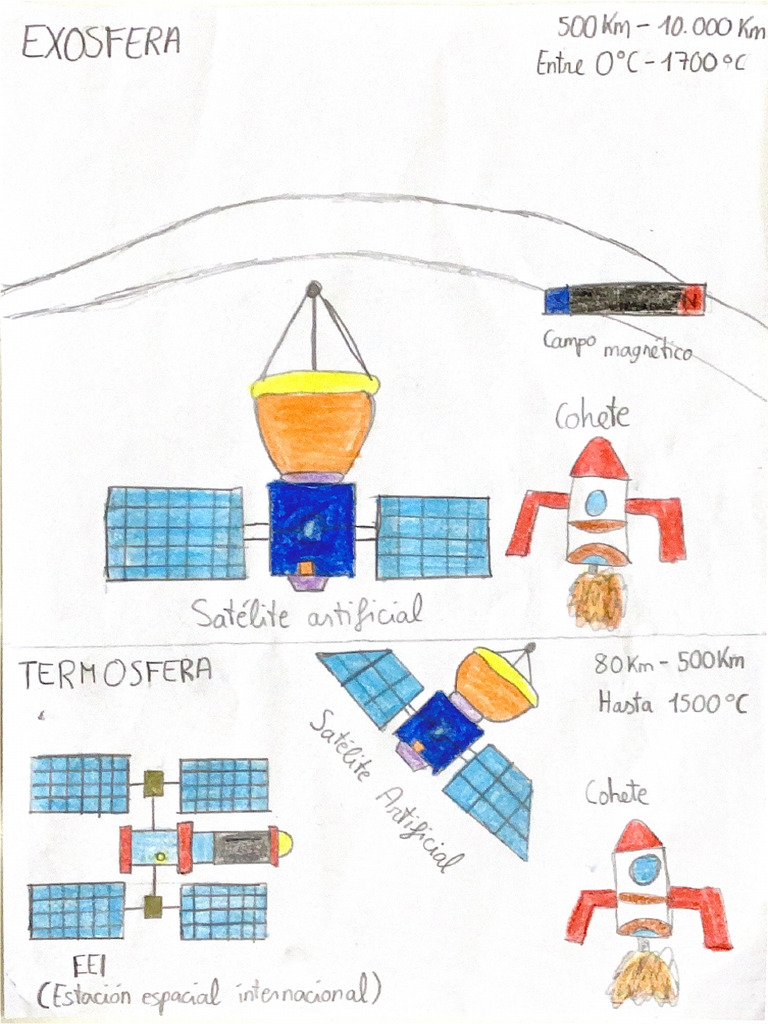 EXOSFERA
500 Km - 10.000 Km
Entre 0°C - 1700°C
N
Campo magnético
Cohete
Satélite artificial
TERMOSFERA
80 Km - 500 Km
Hasta 1500°C
Satélite Artificial
Cohete
EEI
(Estación espacial internacional)